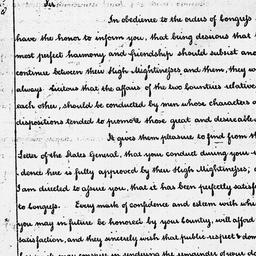 Sir
In obedience to the orders of Congress
have the honor to inform you, that being desirous that
most perfect harmony and friendship should subsist and
continue between their High Mightinesses and them, they w
always Curious that the affairs of the two Countries relative
each other, should be conducted by men whose characters a
dispositions tended to promote those great and desireable
It gives them pleasure to find from th
Letter of the States General, that your conduct during your
dence here is fully approved by their High Mightinesses;
I am directed to assure you, that it has been perfectly satisf
to Congress. Every mark of confidence and esteem with whi
you may in future be honored by your Country, will afford
satisfaction, and they sincerely wish that public respect & dom
may conspire in rendering the remainder of your da